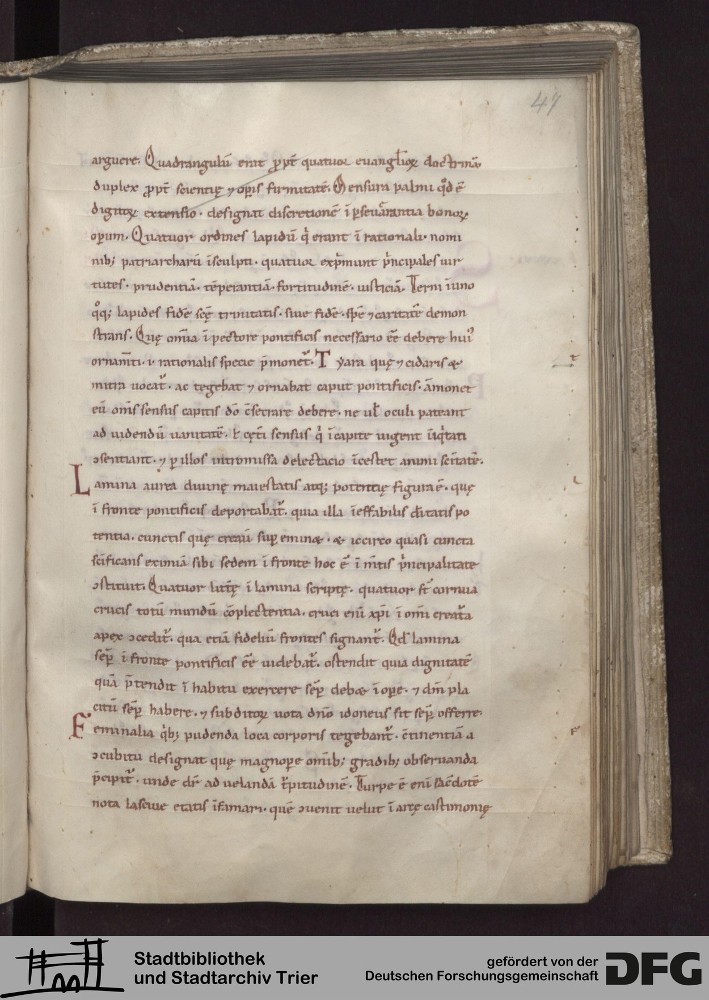 47
arguere. Quadrangulū erat ꝓpt̄ quatuor euangl̄ioꝝ doctrinā.
duplex ꝓpt̄ scientię ⁊ op̄is firmitatē. Mensura palmi q̊d ē
digitoꝝ extensio. designat discretionē ī ꝑseuerantia bonoꝝ
oꝑum. Quatuor ordines lapidū q̇ erant ī rationali. nomi
nib; patriarcharū īsculpti. quatuor exp̄munt p̄ncipales uir
tutes. prudentiā. tēperantiā. fortitudinē. iusticiā. Terni ī uno
q̊q; lapides fidē scē trinitatis. siue fidē. spē ⁊ caritatē demon
strans. Quę om̄ia ī pectore pontificis necessario eē debere hui᾽
ornam̄ti. i. rationalis specie p̄monet᷑. Tyara quę ⁊ cidaris &
mitra uocat᷑. ac tegebat ⁊ ornabat caput pontificis. āmonet
eū om̄s sensus capitis dō c̄secrare debere. ne ul̄ oculi pateant
ad uidendū uanitatē. ł cęt̄i sensus q̇ ī capite uigent īiq̇tati
ↄsentiant. ⁊ ꝑ illos intromissa delectacio īcestet animi sc̄itatē.
Lamina aurea diuinę maiestatis atq; potentię figura ē. quę
ī fronte pontificis deportabat᷑. quia illa īeffabilis d̄itatis po
tentia. cunctis quę creauī suꝑeminet. & iccirco quasi cuncta
sc̄ificans eximiā sibi sedem ī fronte hoc ē ī m̄tis p̄ncipalitate
ↄstituit. Quatuor litt̄ę ī lamina scriptę. quatuor st̄ cornua
crucis totū mundū cōplectentia. cruci enī xp̄i ī om̄i creat᷑a
apex ↄcedit᷑. qua etiā fideliū frontes signant᷑. Qd̄ lamina
semꝑ ī fronte pontificis eē uidebat᷑. ostendit quia dignitatē
quā p̄tendit ī habitu exercere sēꝑ debet ī oꝑe. ⁊ dm̄ pla
citū sēꝑ habere. ⁊ subditoꝝ uota dn̄o idoneus sit sēꝑ offerre.
Feminalia q̇b; pudenda loca corporis tegebant᷑. c̄tinentiā a
ↄcubitu designat quę magnoꝑe om̄ib; gradib; obseruanda
p̄cipit᷑. unde dr̄ ad uelandā t᷑pitudinē. Turpe ē enī sacerdotē
nota lasciue etatis īfamari. quē ↄuenit uelut ī arce castimonię
Stadtbibliothek
und Stadtarchiv Trier
gefördert von der
Deutschen Forschungsgemeinschaft
DFG